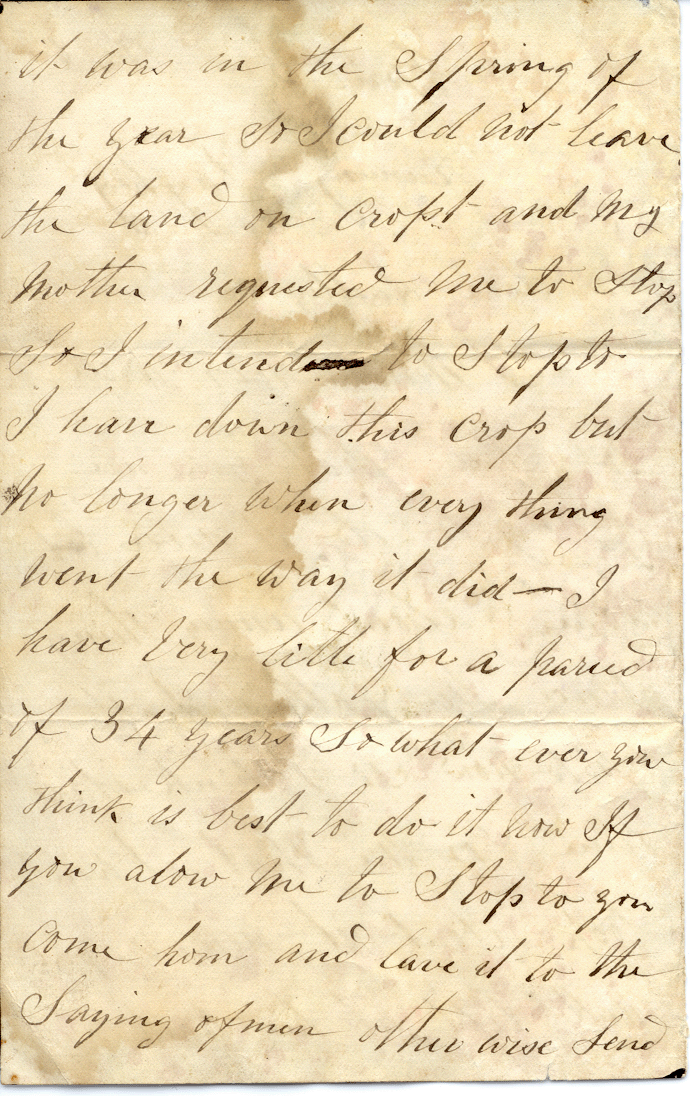 it was in the Spring of
the year So I could not leave
the land on cropt and my
mother requested me to Stop
So I intend to Stop to
I have down this crop but
no longer when every thing
went the way it did — I
have Very little for a paried
of 34 years So what ever you
think is best to do it now If
you alow me to Stop to you
come hom and lave it to the
Saying of men other wise Send